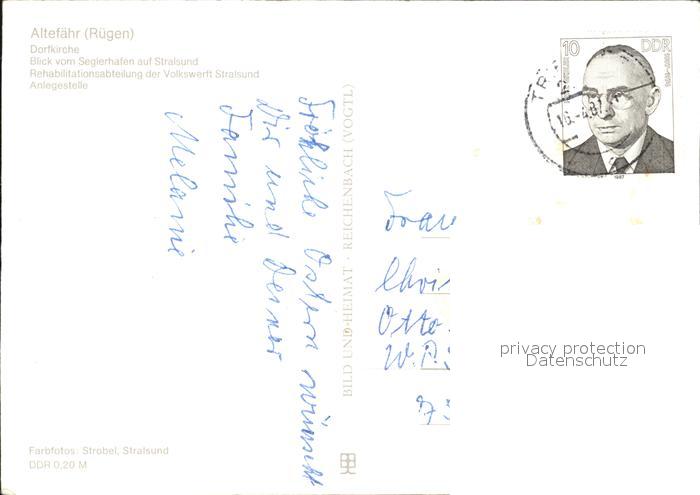 Altefähr (Rügen)
Dorfkirche
Blick vom Seglerhafen auf Stralsund
Rehabilitationsabteilung der Volkswerft Stralsund
Anlegestelle
Fröhliche Ostern wünscht
Dir und Deiner
Familie
Melanie
BILD UND HEIMAT · REICHENBACH (VOGTL)
10 DDR
1987
TR
16.-4.87
Frau
Chri
Otto
W.P.
privacy protection
Datenschutz
Farbfotos: Strobel, Stralsund
DDR 0,20 M